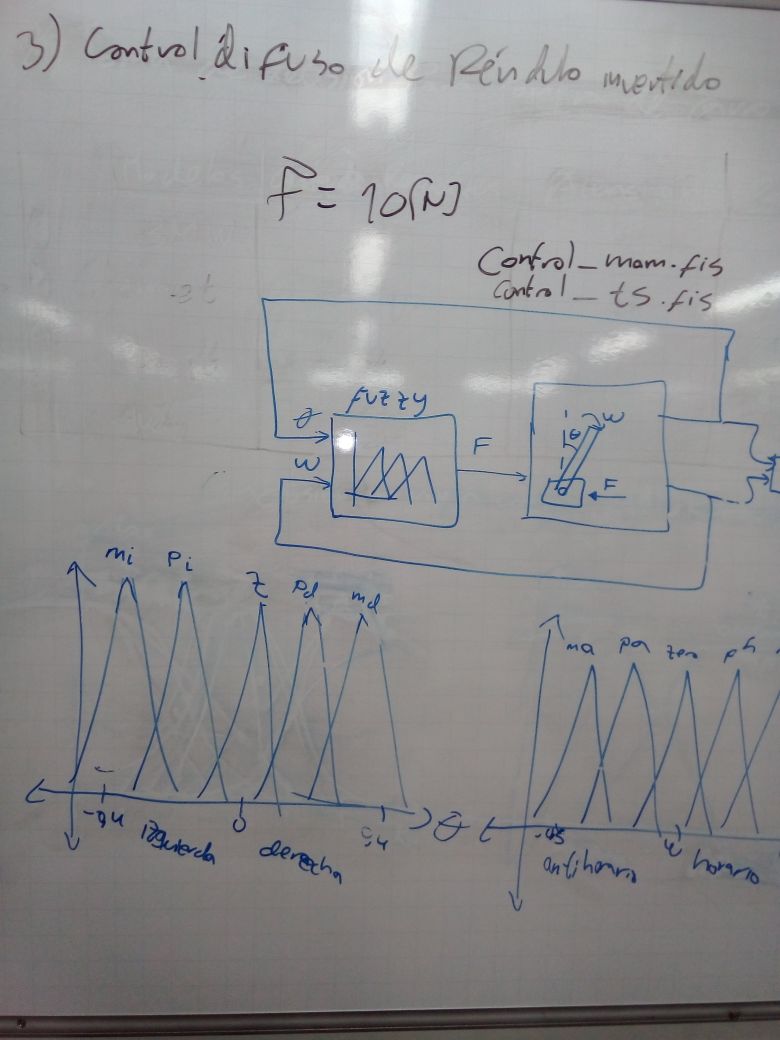 3) Control difuso de Péndulo invertido
F = 10[N]
Control_mam.fis
Control_ts.fis
fuzzy
θ
w
F
θ
w
F
mi Pi z Pd md
-0,4 0 0,4 θ
izquierda derecha
ma pa zero ph
w
antihorario horario